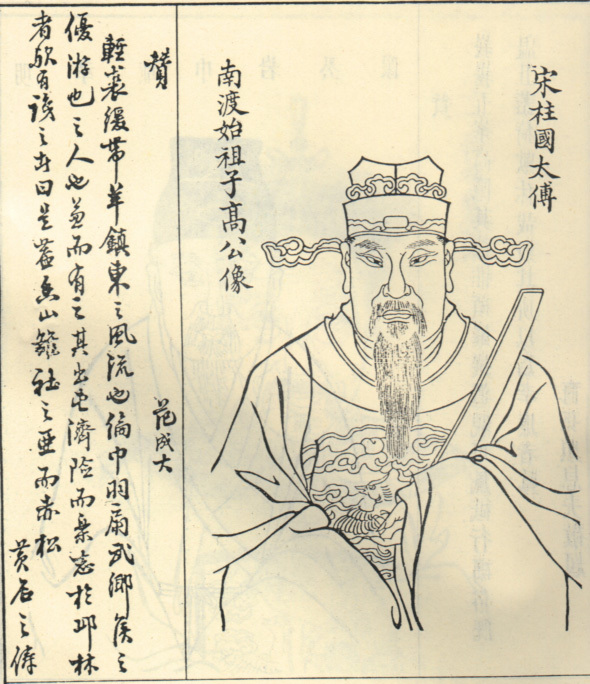 宋柱國太傅
南渡始祖子高公像
贊 范成大
輕裘緩帶羊鎮東之風流也綸巾羽扇武鄉侯之
優游也之人也兼而有之其出屯濟險而棄志於邱林
者歟 之 曰是 山 社之亞而赤松
黃石之儔